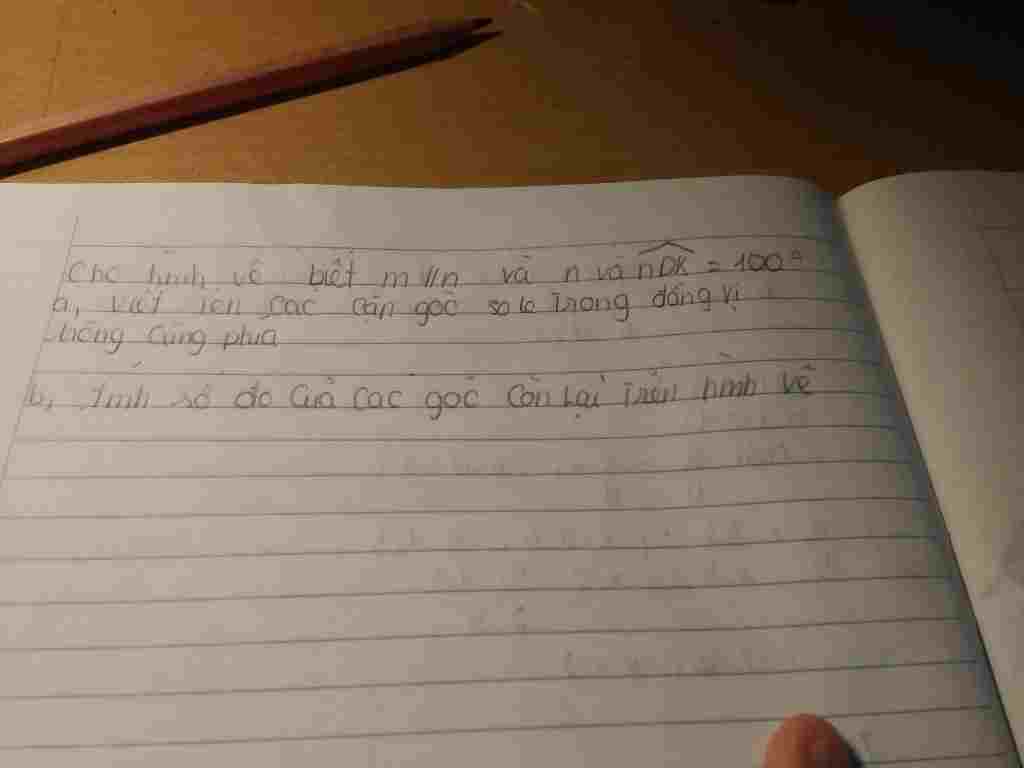 Cho hình vẽ biết m //n và n và nDK = 100°
a, viết tên các cặp góc so le trong đồng vị
trong cùng phía
b, Tính số đo của các góc còn lại trên hình vẽ